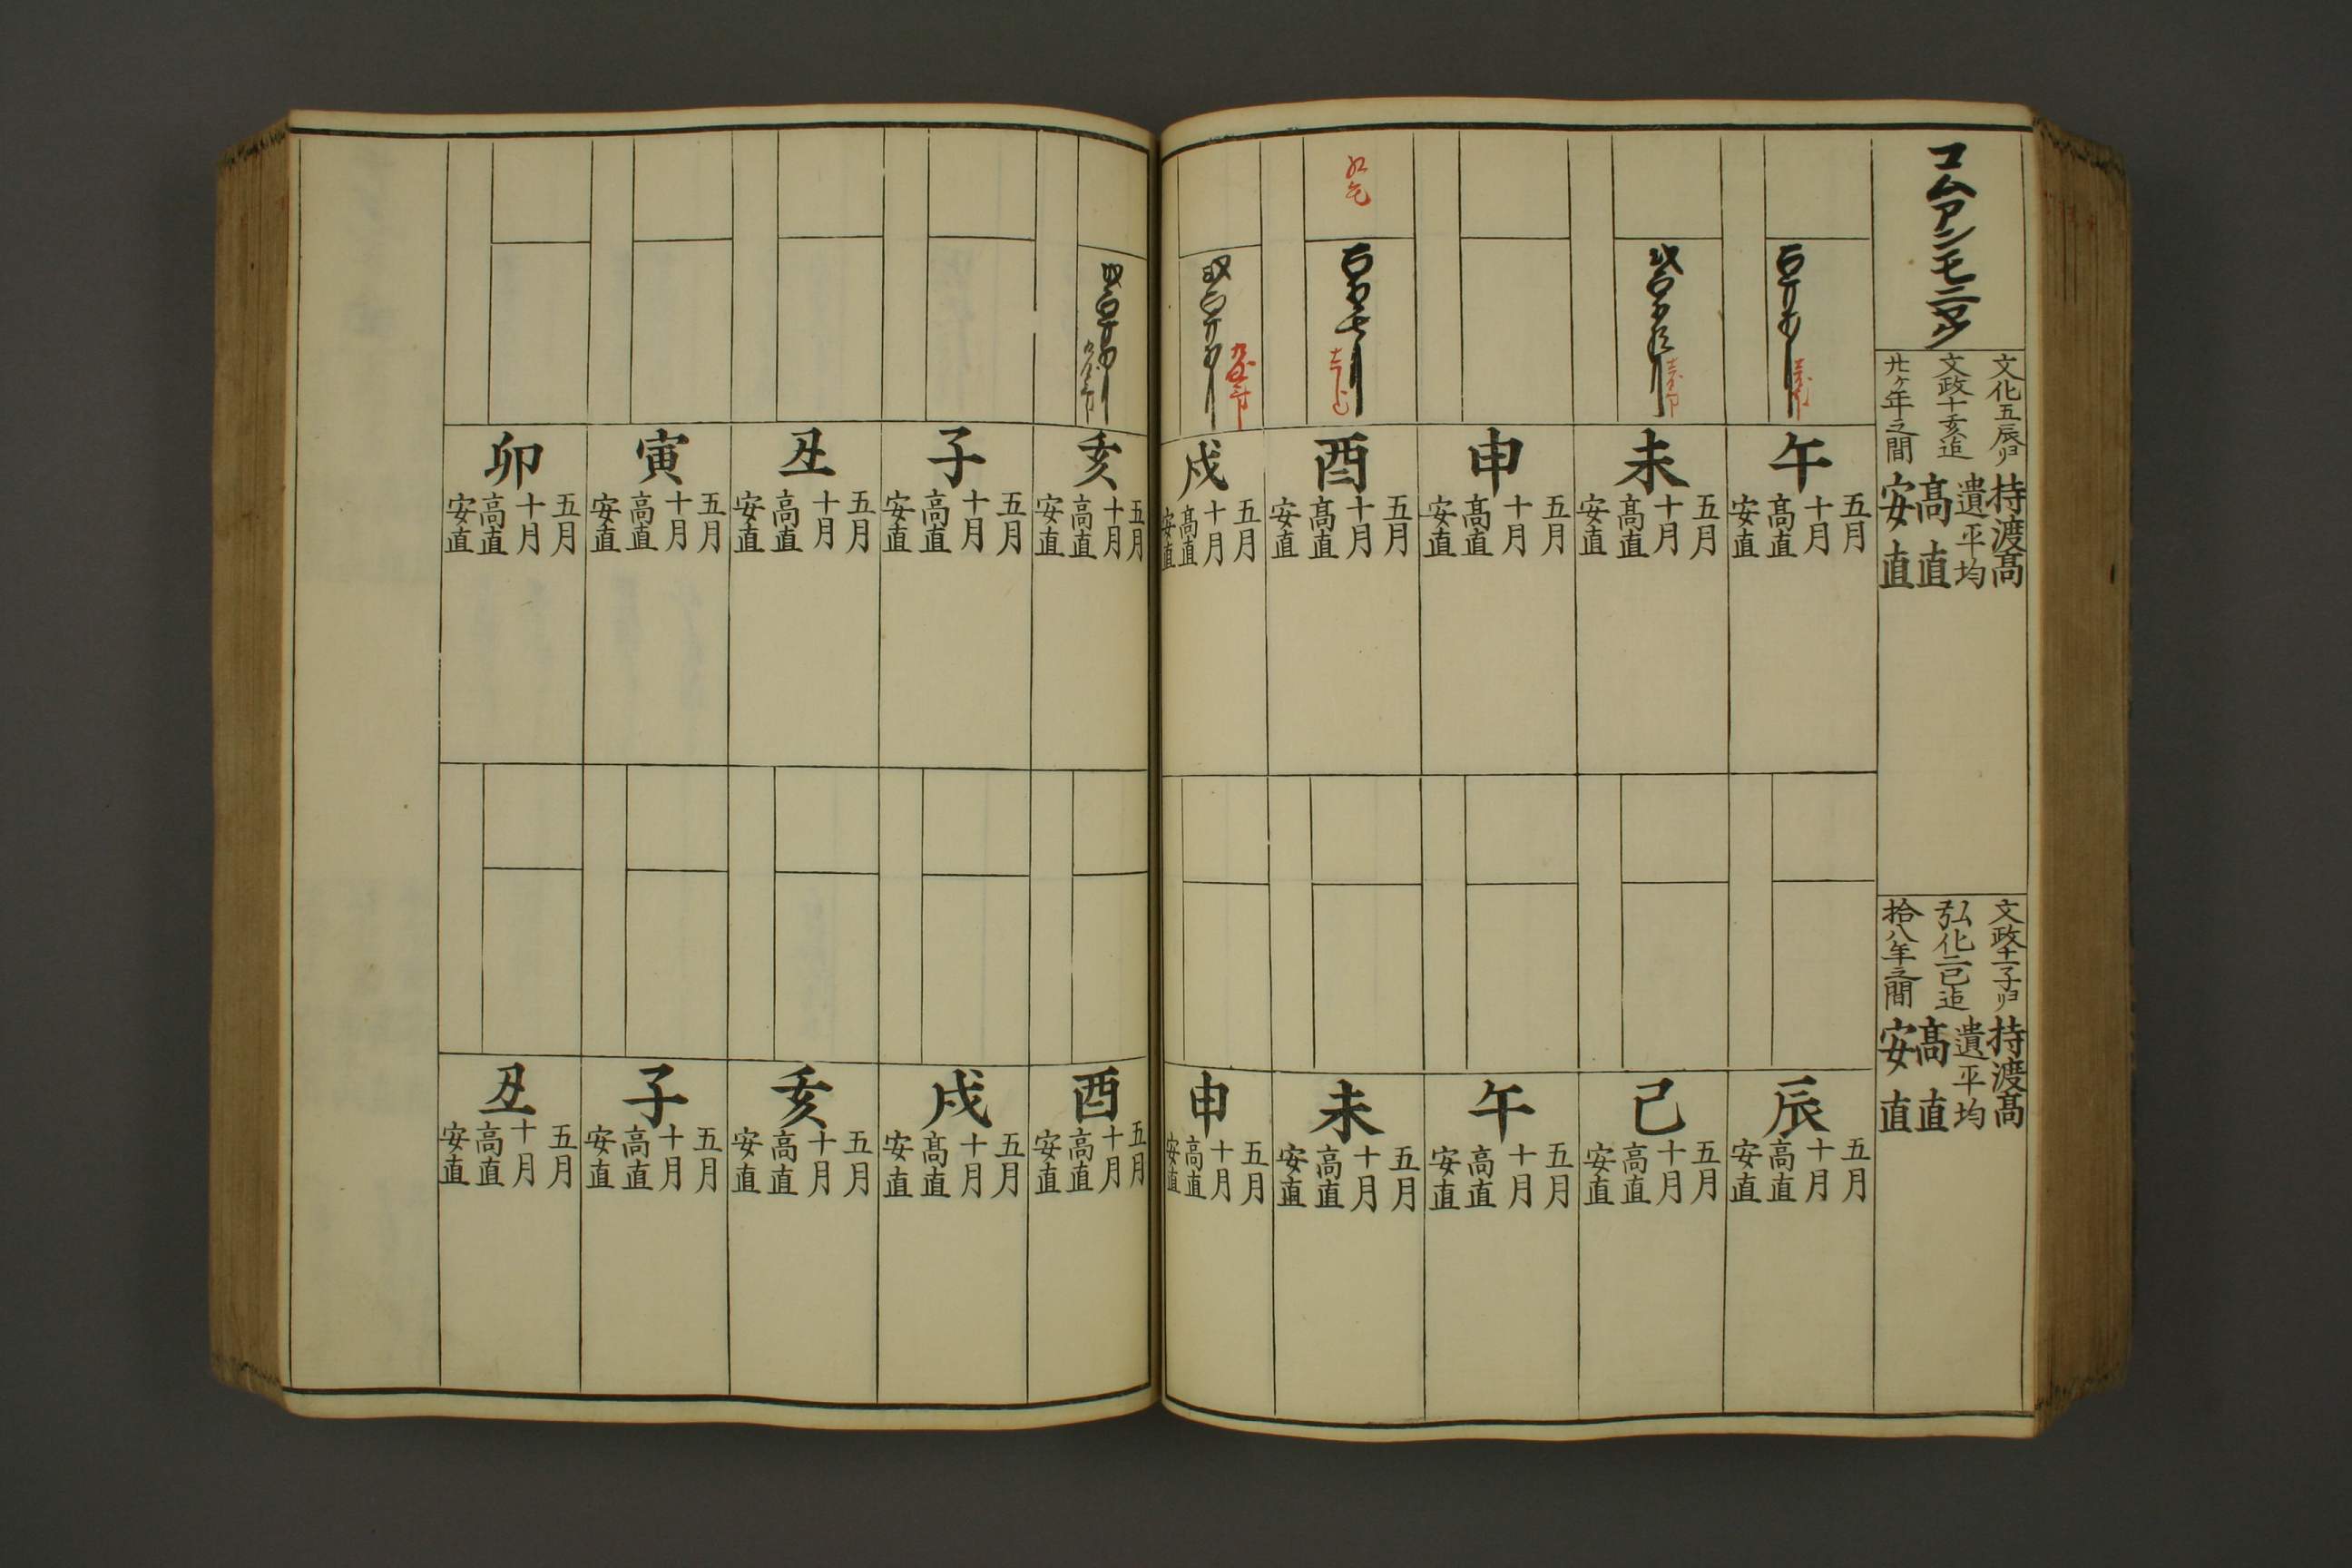 コムアンモニヤク
文化五辰ゟ
文政十亥迠
廿ケ年之間
持渡髙
遣平均
髙直
安直
文政十一子ゟ
弘化二巳迠
拾八年之間
持渡髙
遣平均
髙直
安直
午
五月
十月
髙直
安直
未
五月
十月
髙直
安直
申
五月
十月
髙直
安直
酉
五月
十月
髙直
安直
戌
五月
十月
髙直
安直
辰
五月
十月
高直
安直
巳
五月
十月
高直
安直
午
五月
十月
高直
安直
未
五月
十月
高直
安直
申
五月
十月
高直
安直
亥
五月
十月
高直
安直
子
五月
十月
高直
安直
丑
五月
十月
高直
安直
寅
五月
十月
高直
安直
卯
五月
十月
高直
安直
酉
五月
十月
高直
安直
戌
五月
十月
髙直
安直
亥
五月
十月
高直
安直
子
五月
十月
高直
安直
丑
五月
十月
高直
安直